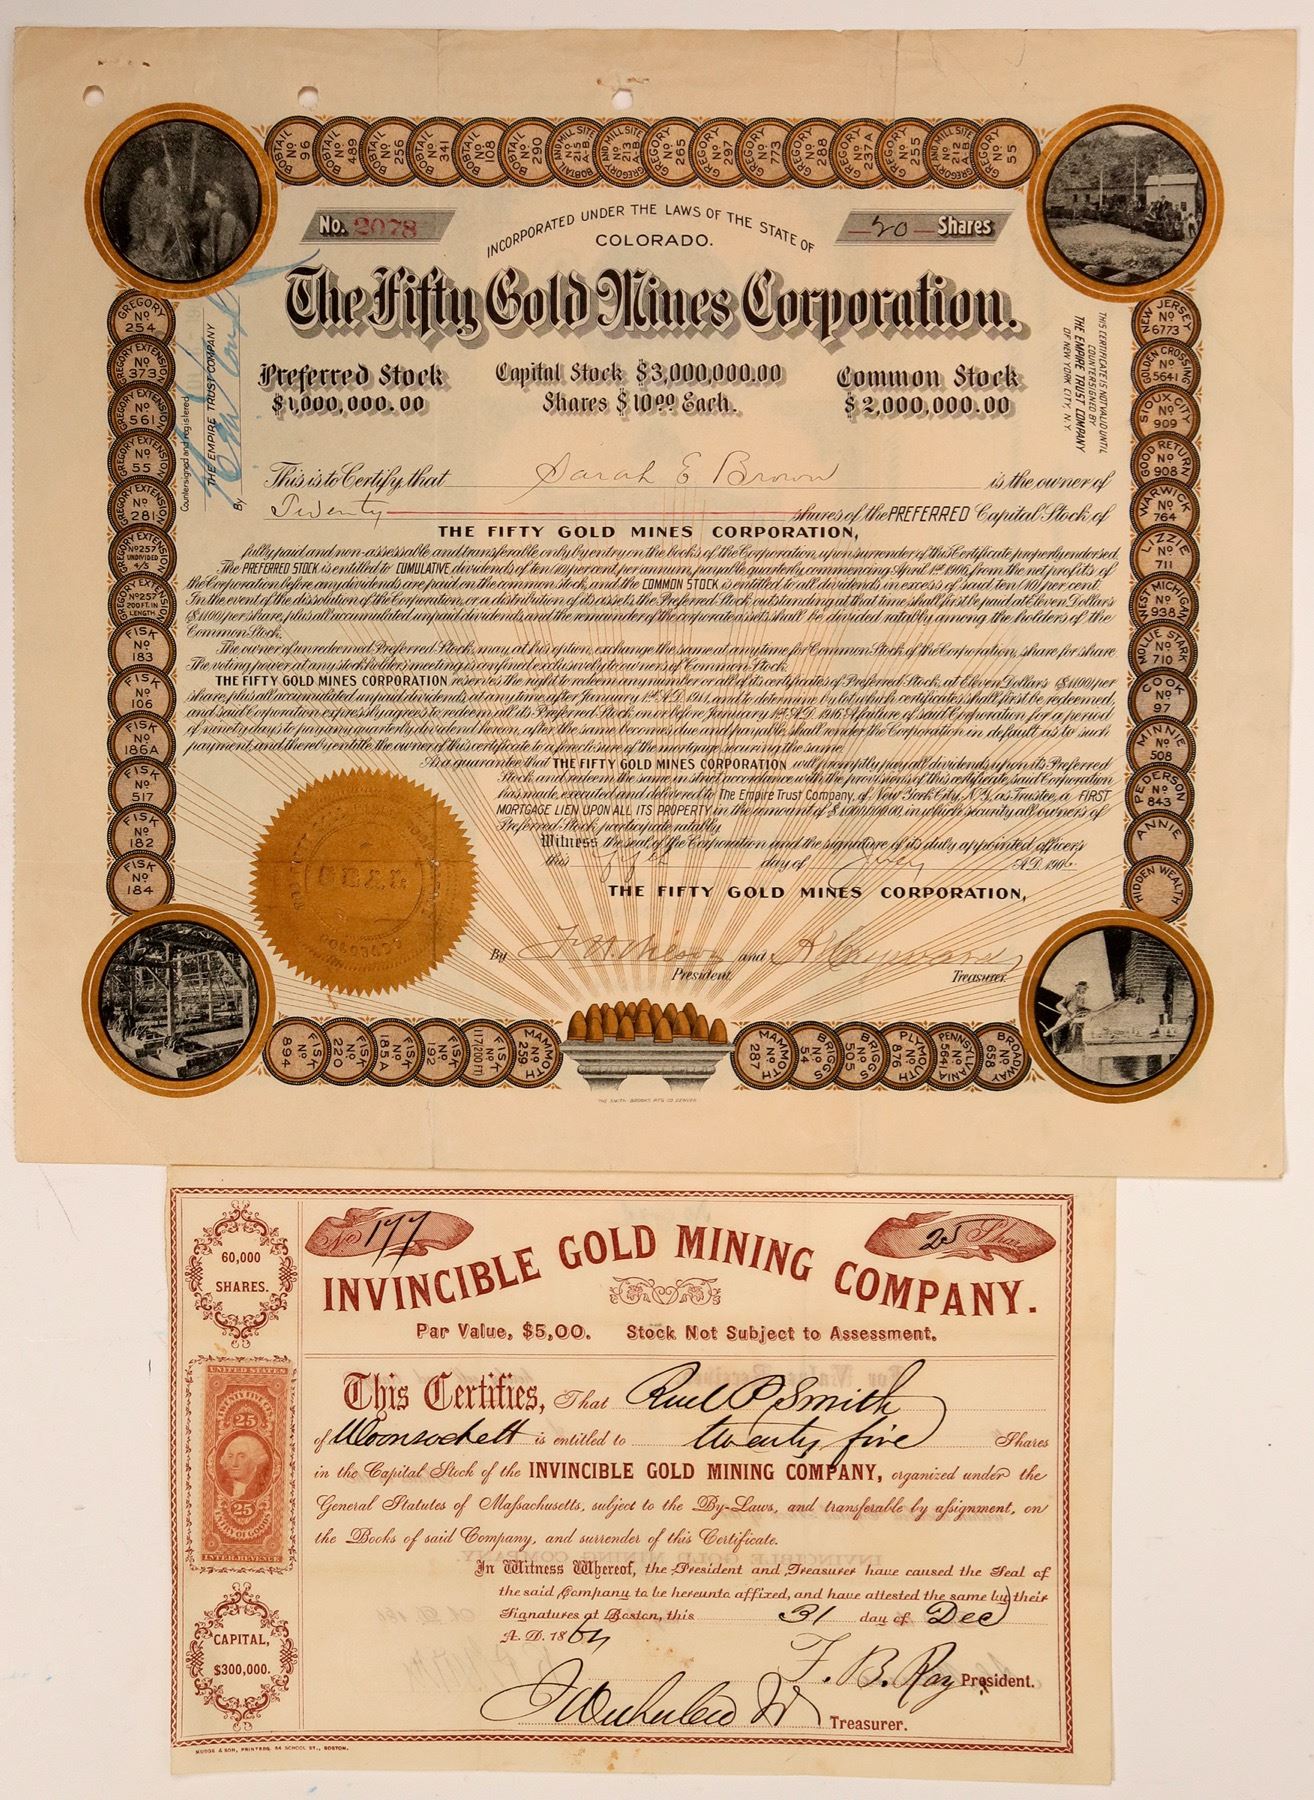 BOBTAIL No 96
BOBTAIL No 489
BOBTAIL No 256
BOBTAIL No 341
BOBTAIL No 108
BOBTAIL No 290
AND MILL SITE No 215 A-B BOBTAIL
AND MILLSITE No 213 A-B GREGORY
GREGORY No 265
GREGORY No 297
GREGORY No 773
GREGORY No 288
GREGORY No 237A
GREGORY No 255
AND MILL SITE No 212 A-B GREGORY
GREGORY No 55
No. 2078
INCORPORATED UNDER THE LAWS OF THE STATE OF
COLORADO.
20 Shares
The Fifty Gold Mines Corporation.
Preferred Stock
$1,000,000.00
Capital Stock $3,000,000.00
Shares $10.00 Each.
Common Stock
$2,000,000.00
Countersigned and registered
THE EMPIRE TRUST COMPANY
By
THIS CERTIFICATE IS NOT VALID UNTIL
COUNTERSIGNED BY
THE EMPIRE TRUST COMPANY
OF NEW YORK CITY, N.Y.
This is to Certify that Sarah E Brown is the owner of
Twenty shares of the PREFERRED Capital Stock of
THE FIFTY GOLD MINES CORPORATION,
fully paid and non-assessable and transferable only by entry on the books of the Corporation, upon surrender of this Certificate properly endorsed.
The PREFERRED STOCK is entitled to CUMULATIVE dividends of ten (10) per cent. per annum, payable quarterly, commencing April 1st 1906, from the net profits of
the Corporation before any dividends are paid on the common stock, and the COMMON STOCK is entitled to all dividends in excess of said ten (10) per cent.
In the event of the dissolution of the Corporation, or a distribution of its assets, the Preferred Stock outstanding at that time shall first be paid at Eleven Dollars
($11.00) per share, plus all accumulated unpaid dividends, and the remainder of the corporate assets shall be divided ratably among the holders of the
Common Stock.
The owner of unredeemed Preferred Stock, may, at his option, exchange the same at any time for Common Stock of the Corporation, share for share.
The voting power at any stockholders meeting is confined exclusively to owners of Common Stock.
THE FIFTY GOLD MINES CORPORATION reserves the right to redeem any number or all of its certificates of Preferred Stock, at Eleven Dollars ($11.00) per
share, plus all accumulated unpaid dividends, at any time after January 1st A.D. 1911, and to determine by lot which certificates shall first be redeemed,
and said Corporation expressly agrees to redeem all its Preferred Stock on or before January 1st A.D. 1916. A failure of said Corporation for a period
of ninety days to pay any quarterly dividend herein, after the same becomes due and payable, shall render the Corporation in default as to such
payment, and thereby entitle the owner of this certificate to a foreclosure of the mortgage securing the same.
As a guarantee that THE FIFTY GOLD MINES CORPORATION will promptly pay all dividends upon its Preferred
Stock, and redeem the same in strict accordance with the provisions of this certificate, said Corporation
has made, executed and delivered to The Empire Trust Company, of New York City, N.Y., as Trustee, a FIRST
MORTGAGE LIEN UPON ALL ITS PROPERTY in the amount of $1,000,000.00, in which security all owners of
Preferred Stock participate ratably.
Witness the seal of the Corporation and the signature of its duly appointed officers
this fifth day of July A.D. 1906
THE FIFTY GOLD MINES CORPORATION,
By and
President. Treasurer.
GREGORY No 254
GREGORY EXTENSION No 373
GREGORY EXTENSION No 561
GREGORY EXTENSION No 55
GREGORY EXTENSION No 281
GREGORY EXTENSION No 257 UNDIVIDED 4/5
GREGORY EXTENSION No 257 200 FT. IN LENGTH
FISK No 183
FISK No 106
FISK No 186A
FISK No 517
FISK No 182
FISK No 184
NEW JERSEY No 6773
GOLDEN CROSSING No 5641
SIOUX CITY No 909
GOOD RETURN No 908
WARWICK No 764
LIZZIE No 711
WEST MICHIGAN No 938
MOLLIE STARK No 710
COOK No 97
MINNIE No 508
PEDERSON No 843
ANNIE
HIDDEN WEALTH
FISK No 894
FISK No 220
FISK No 185A
FISK No 192
FISK No 117 (200 FT)
MAMMOTH No 259
MAMMOTH No 287
BRIGGS No 54
BRIGGS No 505
PLYMOUTH No 676
PENNSYLVANIA No 5641
BROADWAY No 658
THE SMITH-BROOKS MFG CO DENVER
60,000
SHARES.
No 177
25 Shares
INVINCIBLE GOLD MINING COMPANY.
Par Value, $5,00. Stock Not Subject to Assessment.
UNITED STATES
TWENTY FIVE CENTS
25
25
INTER. REVENUE
This Certifies, That Ruel P Smith
of Woonsockett is entitled to twenty five Shares
in the Capital Stock of the INVINCIBLE GOLD MINING COMPANY, organized under the
General Statutes of Massachusetts, subject to the By-Laws, and transferable by assignment, on
the Books of said Company, and surrender of this Certificate.
In Witness Whereof, the President and Treasurer have caused the Seal of
the said Company to be hereunto affixed, and have attested the same by their
Signatures at Boston, this 31 day of Dec
A. D. 1864
CAPITAL,
$300,000.
F. B. Ray President.
Treasurer.
MUDGE & SON, PRINTERS, 34 SCHOOL ST., BOSTON.